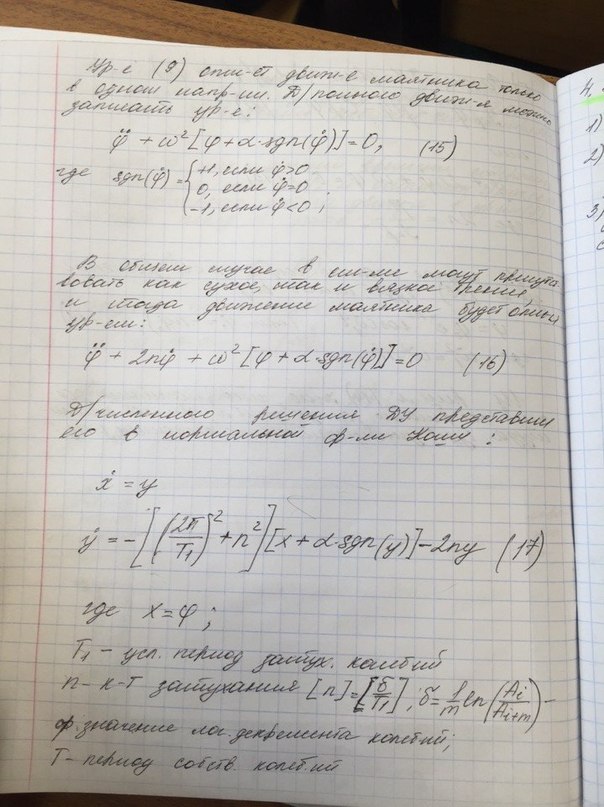 Ур-е (9) опи-ет движ-е маятника только
в одном напр-ии. Д/полного движ-я можно
записать ур-е:
φ̈ + ω²[φ + α·sgn(φ̇)] = 0, (15)
где sgn(φ̇) = {+1, если φ̇>0
0, если φ̇=0
-1, если φ̇<0;
В общем случае в сис-ме могут присутс
вовать как сухое, так и вязкое трения,
и тогда движение маятника будет опис
ур-ем:
φ̈ + 2nφ̇ + ω²[φ + α·sgn(φ̇)] = 0 (16)
Д/численного решения ДУ представим
его в нормальной ф-ме Коши:
ẋ = y
ẏ = -[(2π/T₁)² + n²][x + α·sgn(y)] - 2ny (17)
где x = φ;
T₁ - усл. период затух. колебий
n - к-т затухания [n] = [б/T₁]; б = 1/m ln(Aᵢ/Aᵢ₊ₘ) -
ф. значение лог. декремента колебий;
T - период собств. колебий
4.
1)
2)
3)